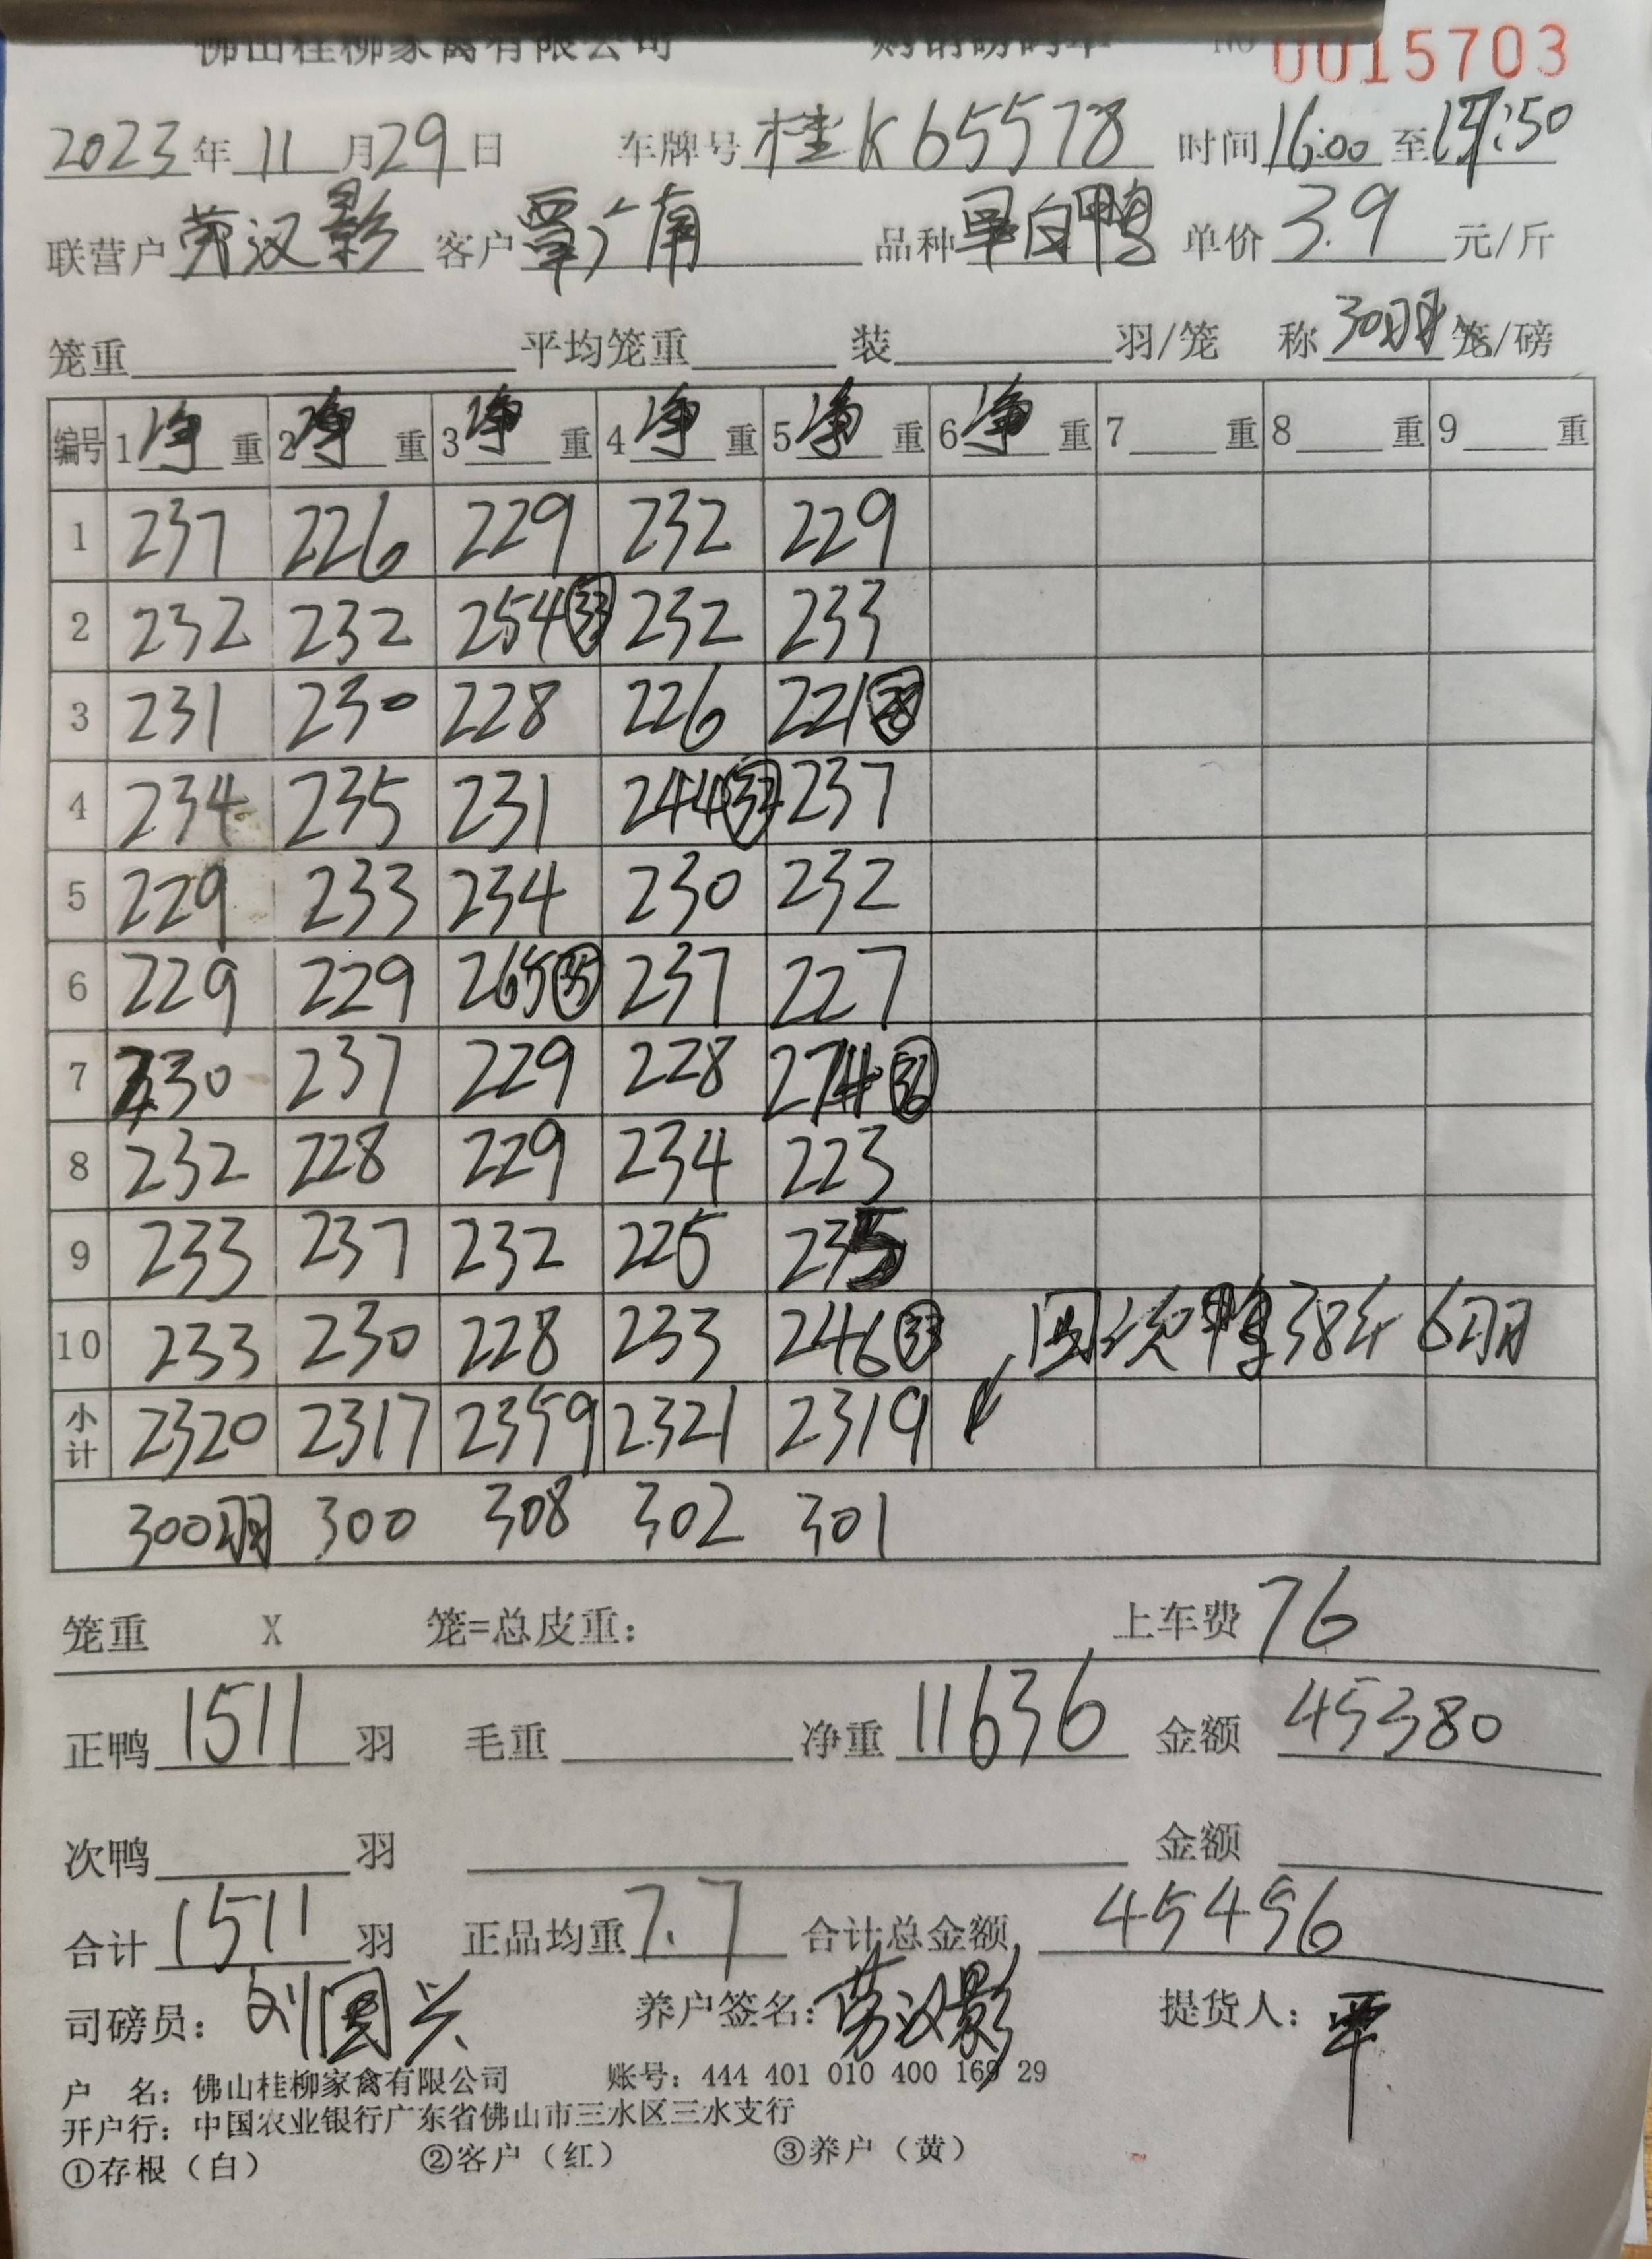 佛山桂柳家禽有限公司 购销磅码单 NO 0015703
2023年11月29日 车牌号桂K65578 时间16:00至17:50
联营户劳汉影 客户覃广南 品种单白鸭 单价3.9元/斤
笼重 平均笼重 装 羽/笼 称30羽笼/磅
编号 1净重 2净重 3净重 4净重 5净重 6净重 7重 8重 9重
1 237 226 229 232 229
2 232 232 254㉝ 232 233
3 231 230 228 226 221㉘
4 234 235 231 244㉜ 237
5 229 233 234 230 232
6 229 229 265㉟ 237 227
7 230 237 229 228 274
8 232 228 229 234 223
9 233 237 232 225 235
10 233 230 228 233 246 回次鸭38斤6羽
小计 2320 2317 2359 2321 2319
300羽 300 308 302 301
笼重 X 笼=总皮重: 上车费76
正鸭1511羽 毛重 净重11636 金额45380
次鸭 羽 金额
合计1511羽 正品均重7.7 合计总金额45456
司磅员:刘国兴 养户签名:劳汉影 提货人:覃
户 名:佛山桂柳家禽有限公司 账号:444 401 010 400 169 29
开户行:中国农业银行广东省佛山市三水区三水支行
①存根(白) ②客户(红) ③养户(黄)